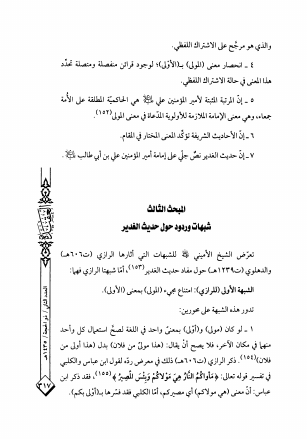 والذي هو مرجّح على الاشتراك اللفظي.
٤ ـ انحصار معنى (المولى) بـ(الأوْلى)؛ لوجود قرائن منفصلة ومتصلة تحدّد
هذا المعنى في حالة الاشتراك اللفظي.
٥ ـ إنّ المرتبة المثبتة لأمير المؤمنين علي هي الحاكميّة المطلقة على الأُمة
جمعاء، وهي معنى الإمامة الملازمة للأولوية المدّعاة في معنى المولى(١٥٢).
٦ ـ إنّ الأحاديث الشريفة تؤكّد المعنى المختار في المقام.
٧ ـ إنّ حديث الغدير نصّ جليّ على إمامة أمير المؤمنين علي بن أبي طالب .
المبحث الثالث
شبهات وردود حول حديث الغدير
تعرّض الشيخ الأميني للشبهات التي أثارها الرازي (ت٦٠٦هـ)
والدهلوي (ت١٢٣٩هـ) حول مفاد حديث الغدير(١٥٣)، أمّا شبهتا الرازي فهما:
الشبهة الأولى (للرازي): امتناع مجيء (المولى) بمعنى (الأولى).
تدور هذه الشبهة على محورين:
١ ـ لو كان (مولى) و(أولى) بمعنىً واحد في اللغة لصحّ استعمال كل واحد
منهما في مكان الآخر، فلا يصح أنْ يقال: (هذا مولىً من فلان) بدل (هذا أولى من
فلان)(١٥٤). ذكر الرازي (ت٦٠٦هـ) ذلك في معرض ردّه لقول ابن عباس والكلبي
في تفسير قوله تعالى: ﴿مَأْوَاكُمُ النَّارُ هِيَ مَوْلَاكُمْ وَبِئْسَ الْمَصِيرُ﴾(١٥٥)، فقد ذكر ابن
عباس: أنّ معنى (هي مولاكم) أي مصيركم. أمّا الكلبي فقد فسّرها بـ(أوْلى بكم).
العدد الثاني / ذو الحجة / ١٤٣٥هـ
٣١٧